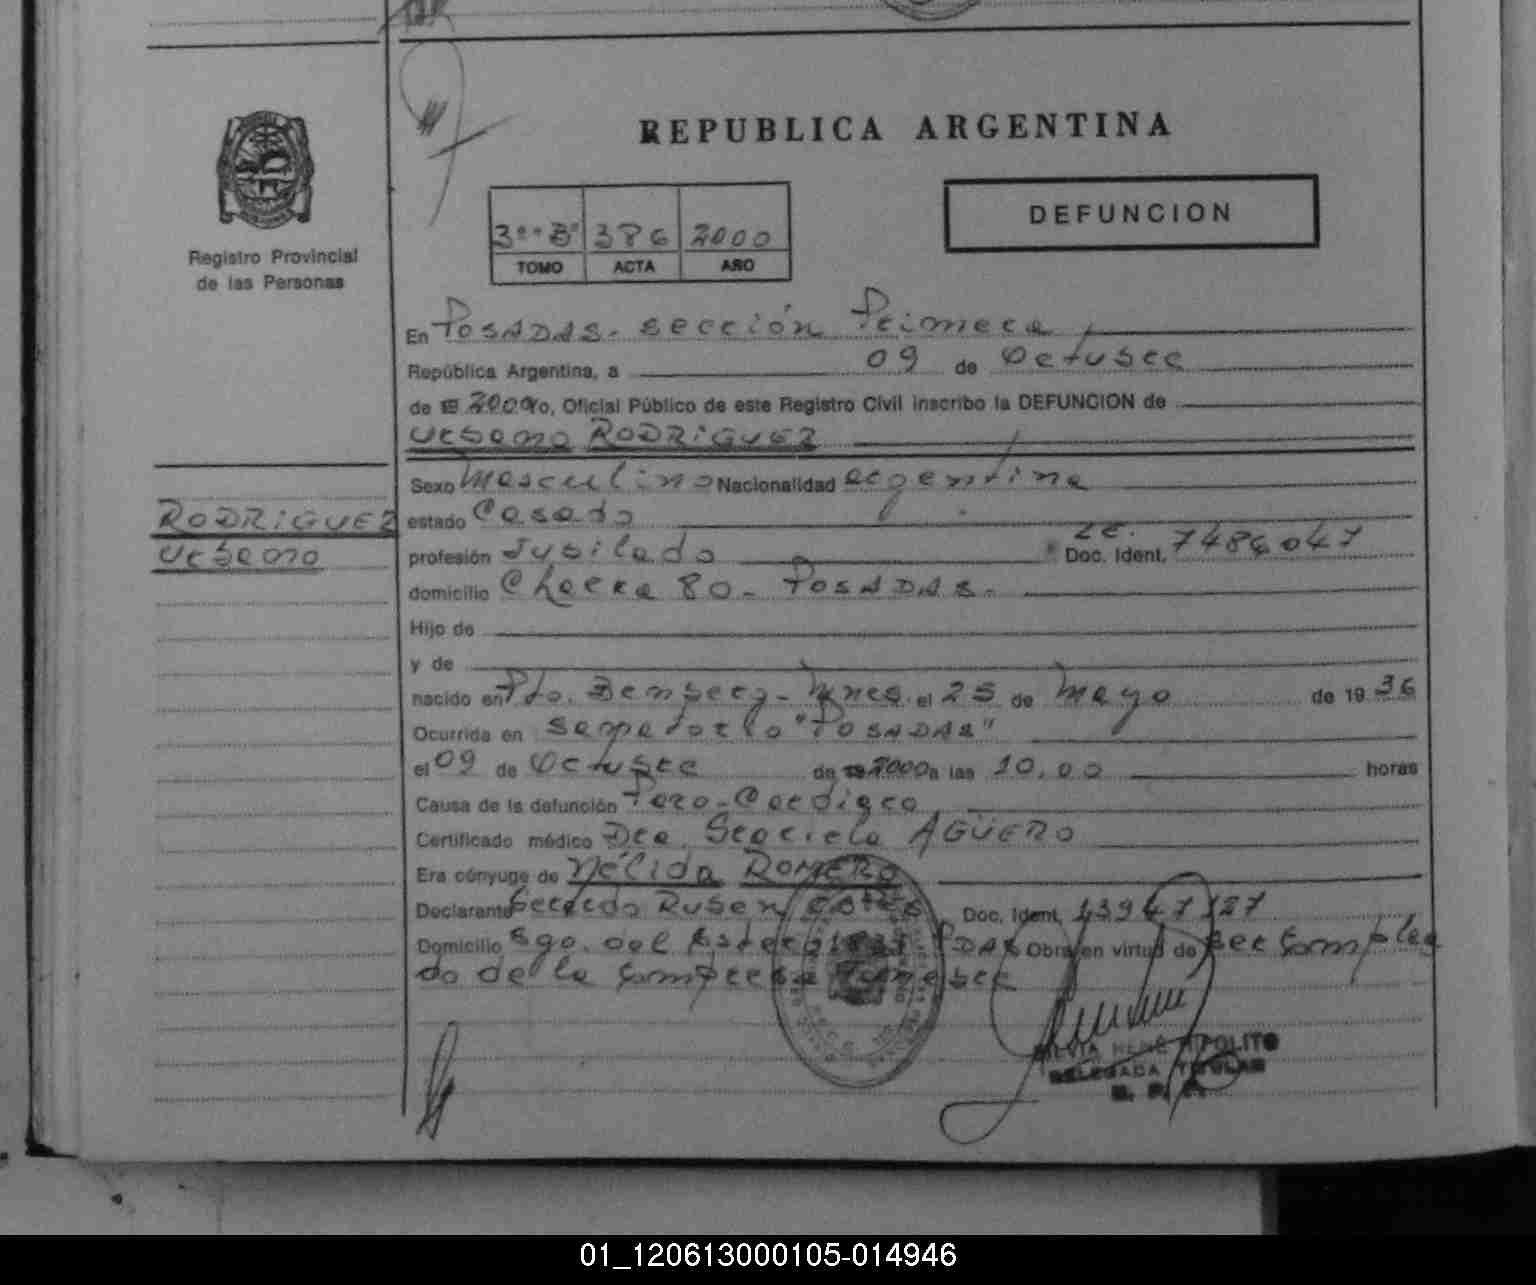 REPUBLICA ARGENTINA
DEFUNCION
Registro Provincial
de las Personas
3º "B" 386 2000
TOMO ACTA AÑO
En POSADAS. sección Primera
República Argentina, a 09 de Octubre
de 19 2000 Yo, Oficial Público de este Registro Civil inscribo la DEFUNCION de
Urbano RODRIGUEZ
Sexo Masculino Nacionalidad argentina
RODRIGUEZ
Urbano
estado Casado
L.E.
profesión Jubilado Doc. Ident. 7486047
domicilio Chacra 80 - POSADAS.
Hijo de
y de
nacido en Pto. Bemberg - Mnes. el 25 de Mayo de 19 36
Ocurrida en Sanatorio "POSADAS"
el 09 de Octubre de 19 2000 a las 10,00 horas
Causa de la defunción Paro-Cardiaco
Certificado médico Dra. Graciela AGÜERO
Era cónyuge de Nélida ROMERO
Declarante Gerardo Ruben Doc. Ident.
Domicilio Sgo. del Estero PDAS Obra en virtud de ser Emplea
do de la Empresa
SILVIA RENE HIPOLITO
DELEGADA TITULAR
01_120613000105-014946